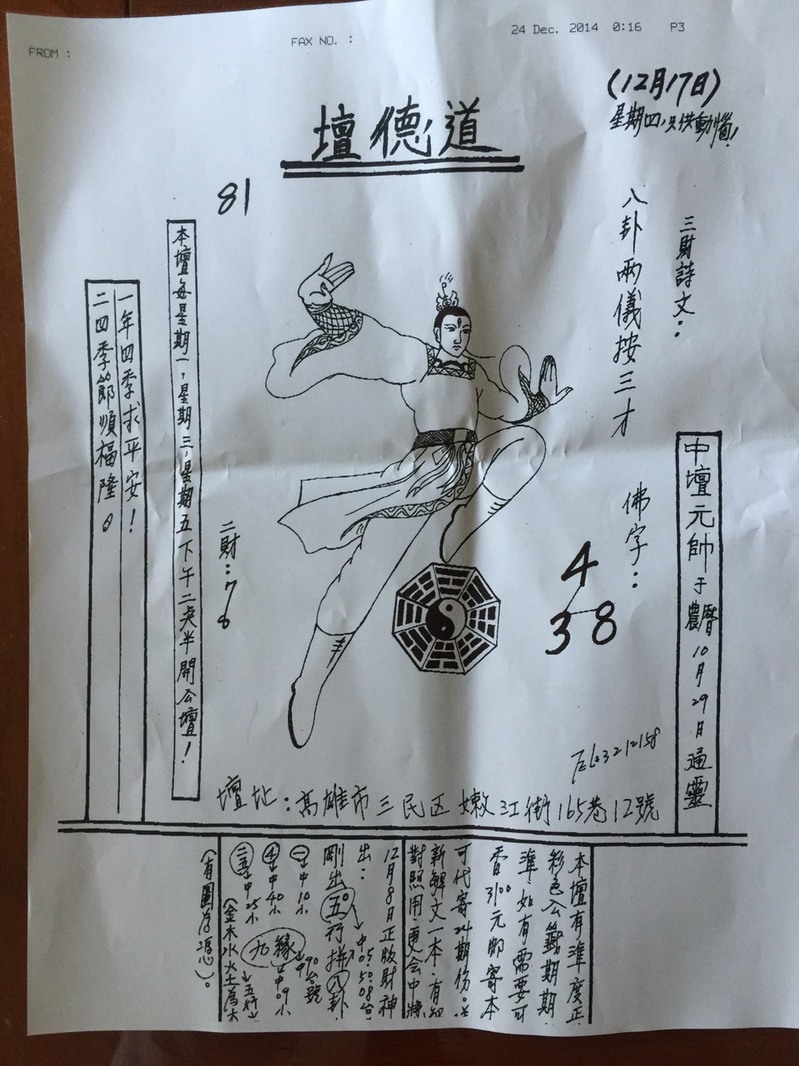 FROM :
FAX NO. :
24 Dec. 2014 0:16 P3
(12月17日)
星期四,只供動惱!
壇德道
81
三財詩文:
八卦兩儀按三才
佛字:
4
38
中壇元帥于農曆10月29日通靈
二財:78
本壇每星期一,星期三,星期五下午二点半開公壇!
一年四季求平安!
二四季節順福隆。
TEL:3212158
壇址:高雄市三民区嫩江街165巷12號
本壇有準度正
彩色公籤期期
準,如有需要可
香3100元即寄本
可代寄24期份。並
新解文一本、有
對照用更会中將
12月8日正版財神
出:中05.50.08台
剛出五行拼八卦
㊀中10小 90台號
④中40小 九緣 中09小
㊂㊄中25小 五行
(金木水火土為
(有圖存憑)。